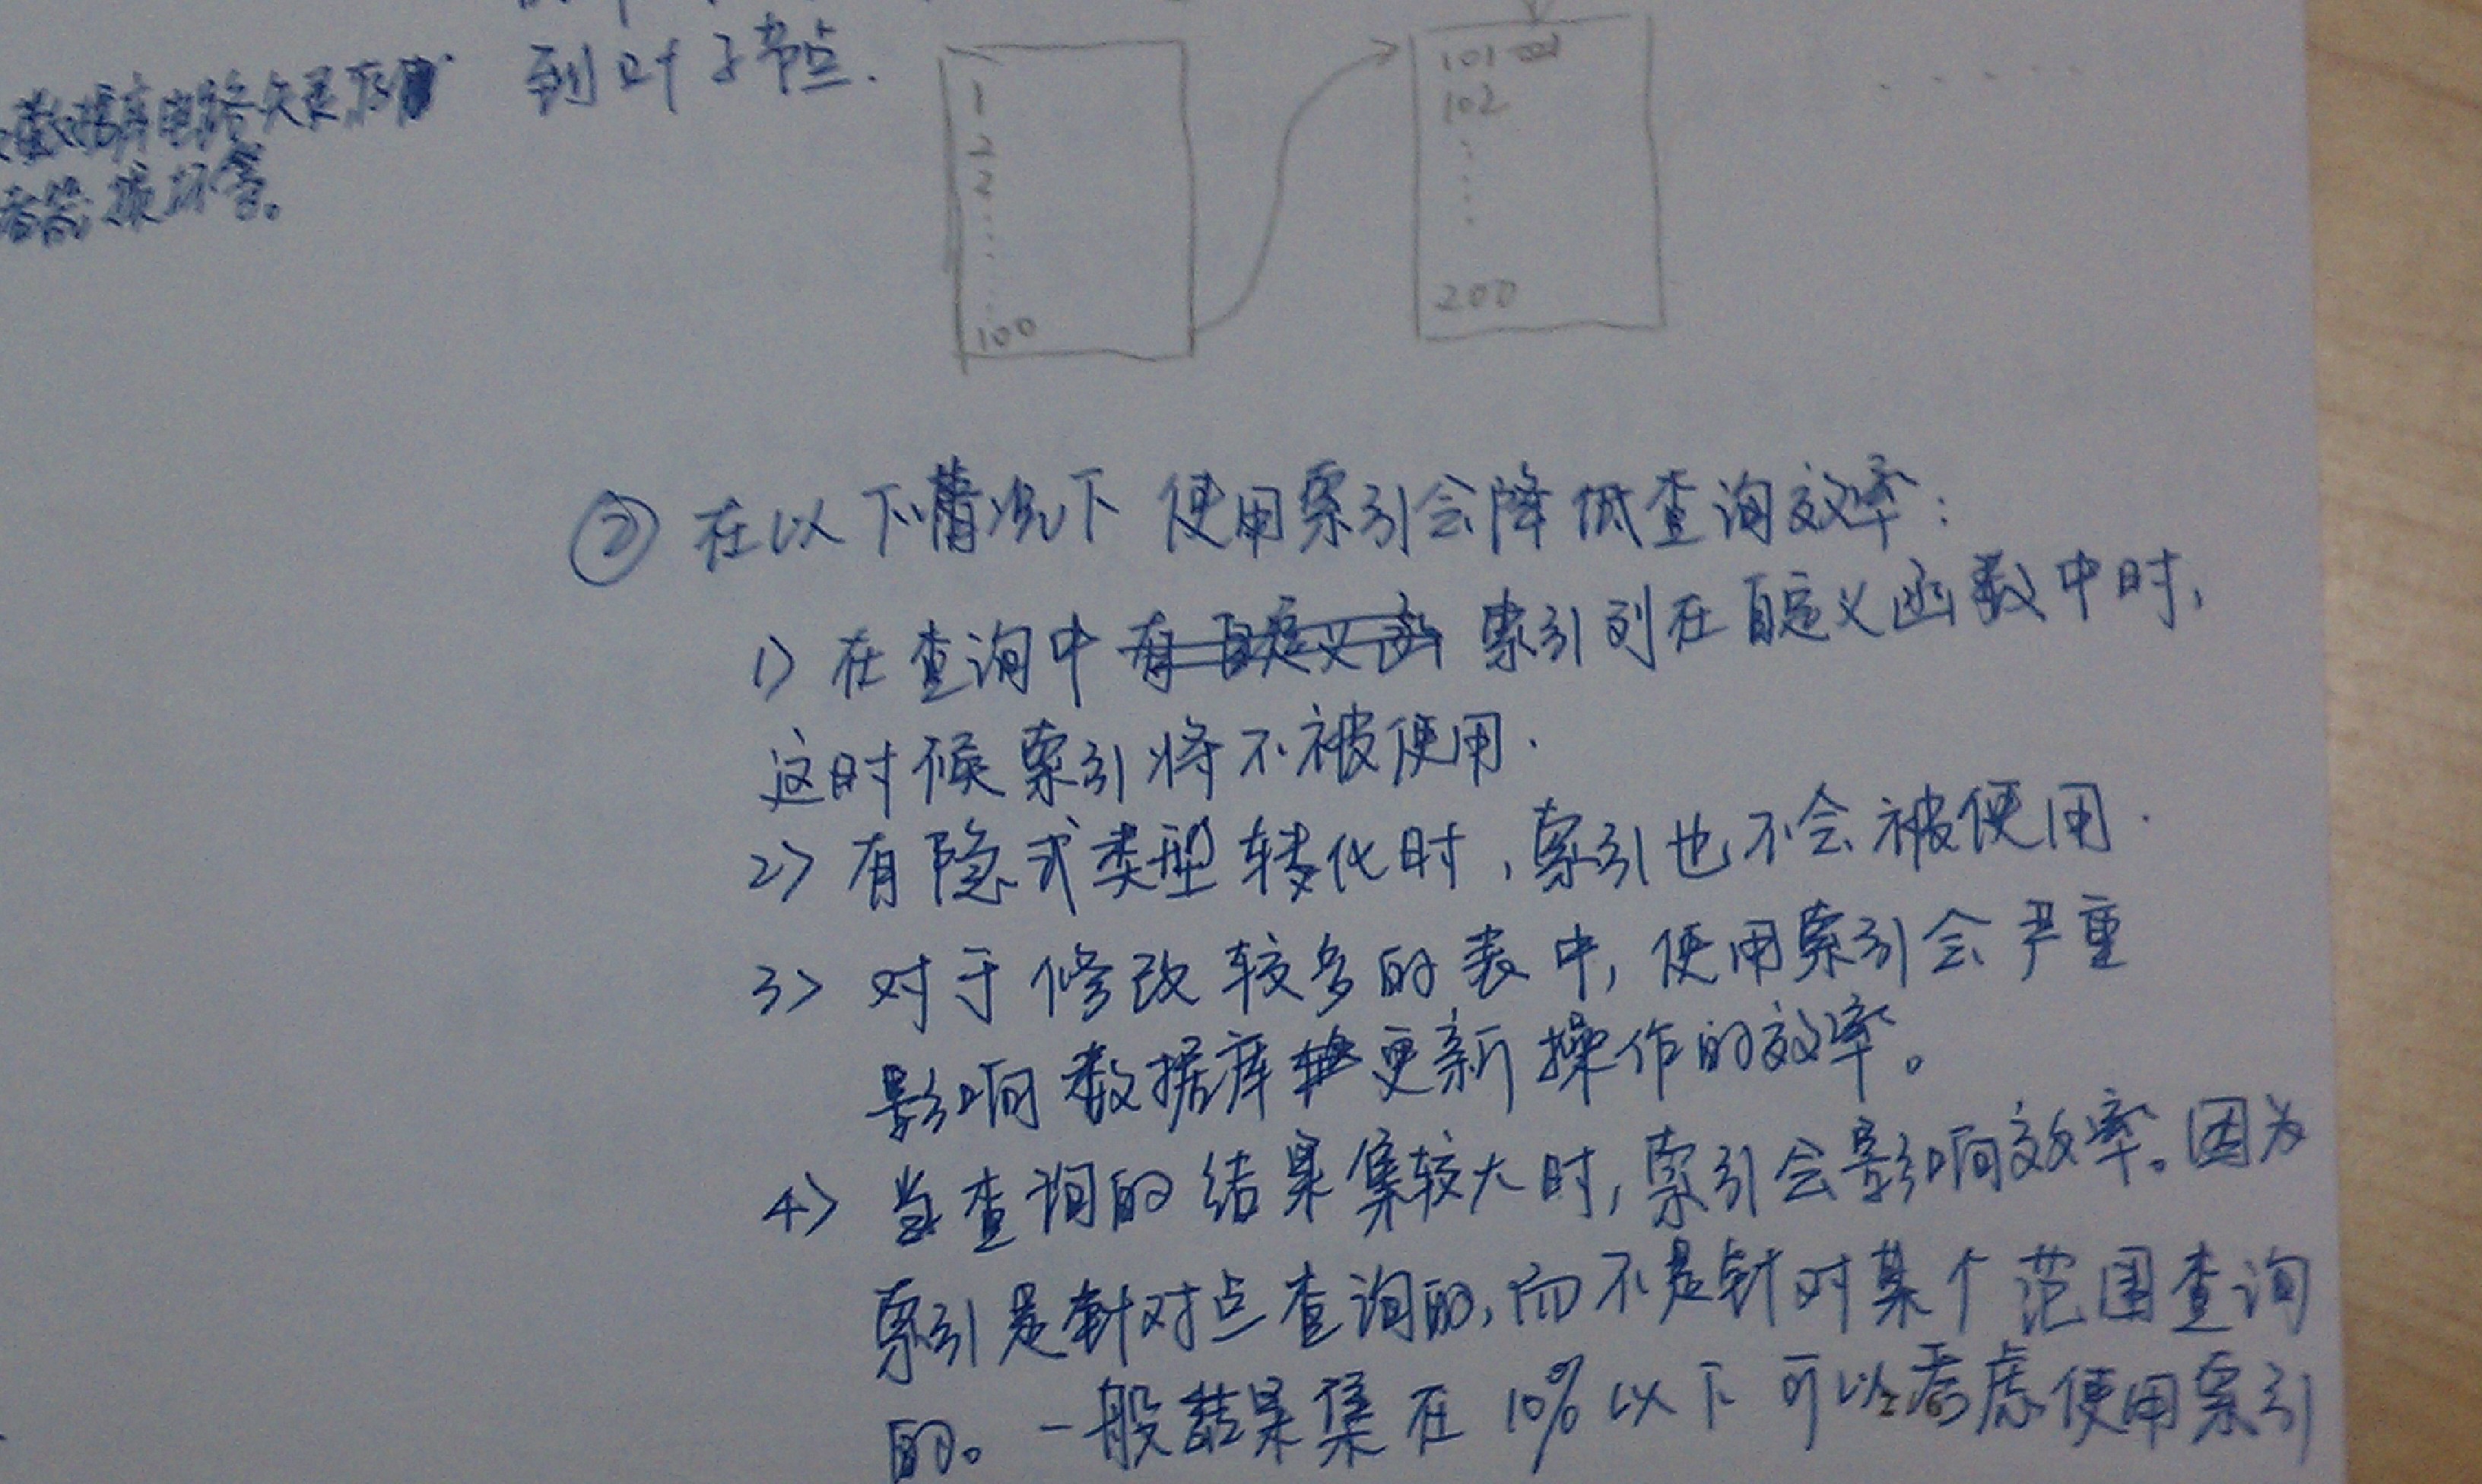 到叶子节点.
数据库电路失灵,存
损坏等。
1
2
2
100
101
102
200
② 在以下情况下 使用索引会降低查询效率:
1) 在查询中 有自定义函 索引列在自定义函数中时,
这时候索引将不被使用.
2) 有隐式类型转化时,索引也不会被使用.
3) 对于修改较多的表中,使用索引会严重
影响数据库更新操作的效率。
4) 当查询的结果集较大时,索引会影响效率。因为
索引是针对点查询的,而不是针对某个范围查询
的。一般结果集在10%以下可以考虑使用索引